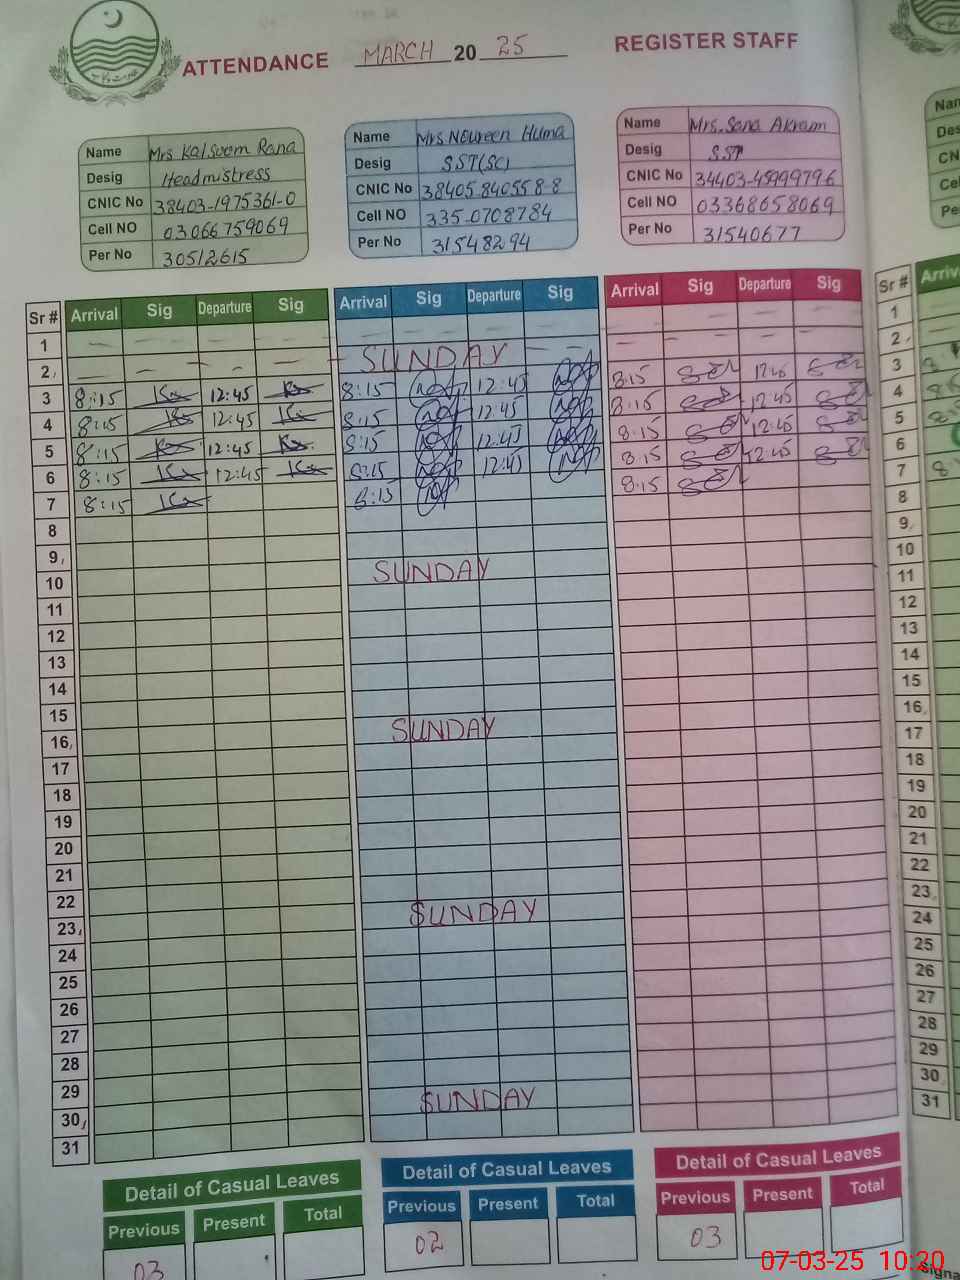 ATTENDANCE MARCH 20 25 REGISTER STAFF
Name Mrs Kalsoom Rana
Desig Headmistress
CNIC No 38403-1975361-0
Cell NO 03066759069
Per No 30512615
Name Mrs Noureen Huma
Desig SST(SC)
CNIC No 38405 8405588
Cell NO 335-0708784
Per No 31548294
Name Mrs. Sana Akram
Desig SST
CNIC No 34403-45999796
Cell NO 03368658069
Per No 31540677
Sr # Arrival Sig Departure Sig Arrival Sig Departure Sig Arrival Sig Departure Sig Sr #
1 1
2, SUNDAY 2,
3 8:15 12:45 8:15 12:45 8:15 12:45 3
4 8:15 12:45 8:15 12:45 8:15 12:45 4
5 8:15 12:45 8:15 12:45 8:15 12:45 5
6 8:15 12:45 8:15 12:45 8:15 12:45 6
7 8:15 8:15 8:15 7
8 8
9, SUNDAY 9,
10 10
11 11
12 12
13 13
14 14
15 15
16, SUNDAY 16,
17 17
18 18
19 19
20 20
21 21
22 22
23, SUNDAY 23,
24 24
25 25
26 26
27 27
28 28
29 29
30, SUNDAY 30,
31 31
Detail of Casual Leaves
Previous Present Total
03
Detail of Casual Leaves
Previous Present Total
02
Detail of Casual Leaves
Previous Present Total
03
07-03-25 10:20